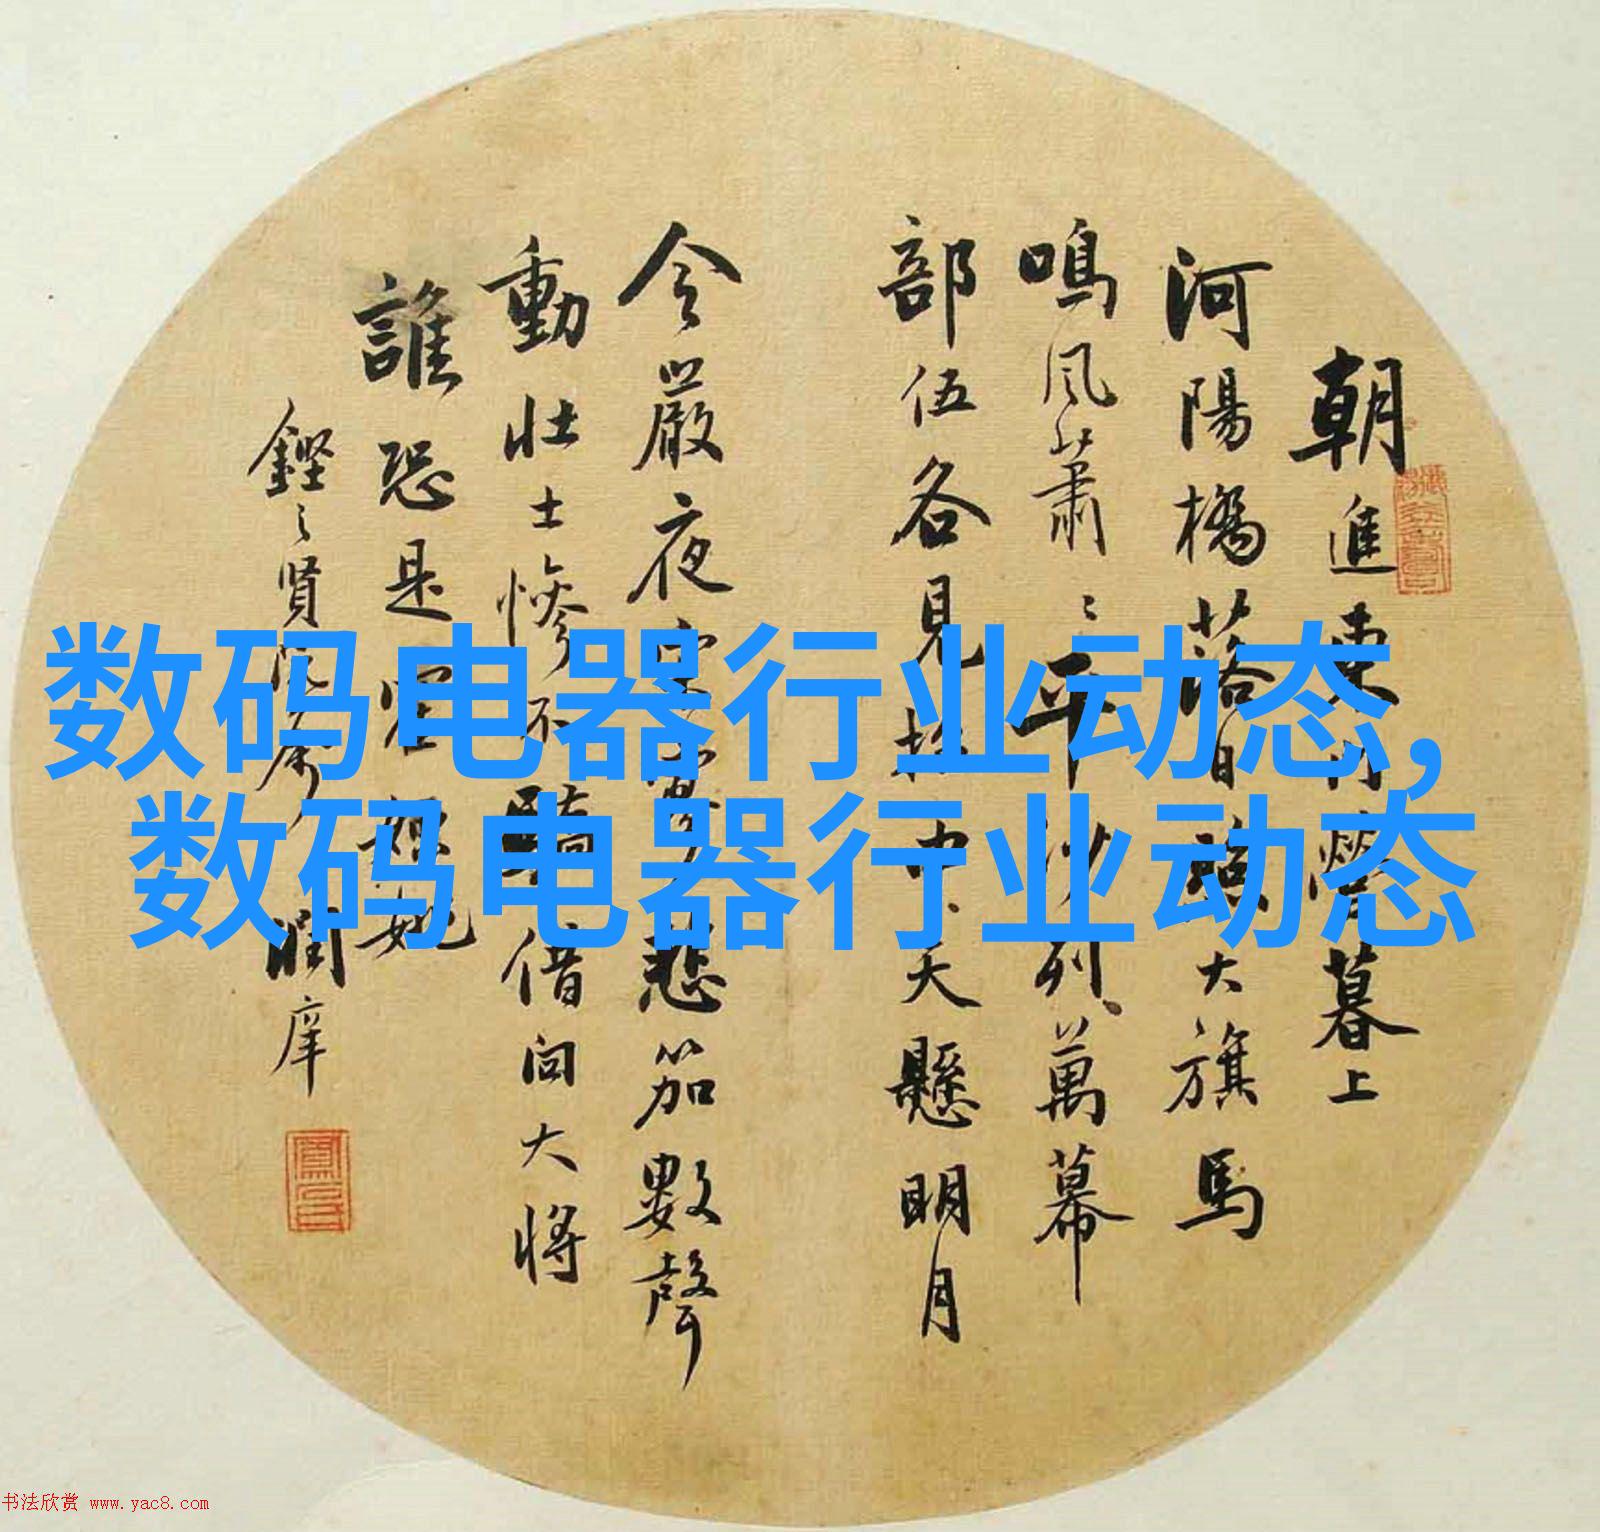 朝進東門營暮上
河陽橋落日照大旗馬
鳴風蕭〻平沙列萬幕
部伍各見招中天懸明月
令嚴夜寂寥悲笳數聲
動壯士慘不驕借問大將
誰恐是霍嫖姚
賢阮屬 潤庠
数码电器行业动态,
数码电器行业动态
书法欣赏 www.yac8.com